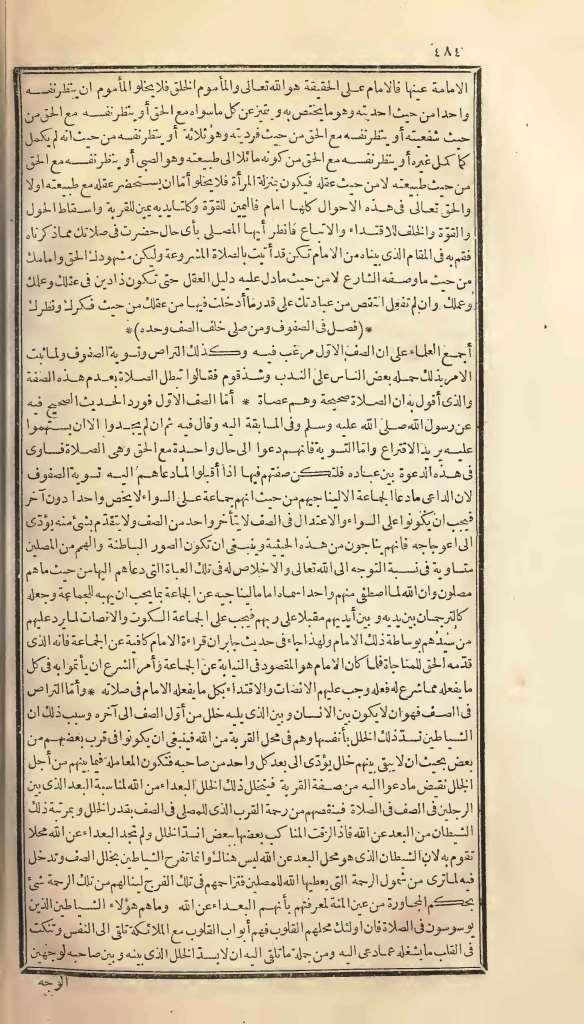 ٤٨٤
الامامة عينها فالامام على الحقيقة هو الله تعالى والمأموم الخلق فلا يخلو المأموم ان ينظر نفسه
واحدا من حيث احديته وهو ما يختص به ويتميز عن كل ما سواه مع الحق أو ينظر نفسه مع الحق من
حيث شفعيته أو ينظر نفسه مع الحق من حيث فرديته وهو ثلاثة أو ينظر نفسه من حيث انه لم يكمل
كما كمل غيره أو ينظر نفسه مع الحق من كونه مائلا الى طبيعته وهو الصبى أو ينظر نفسه مع الحق
من حيث طبيعته لا من حيث عقله فيكون بمنزلة المرأة فلا يخلو أما ان يستحضر عقله مع طبيعته اولا
والحق تعالى فى هذه الاحوال كلها امام فاليمين للقوة وكلتا يديه يمين للقربة واسقاط الحول
والقوة والخلف للاقتداء والاتباع فانظر أيها المصلى بأى حال حضرت فى صلاتك مما ذكرناه
فقم به فى المقام الذى بيناه من الامام تكن قد أتيت بالصلاة المشروعة وليكن مشهودك الحق وامامك
من حيث ما وصفه الشارع لا من حيث ما دل عليه دليل العقل حتى تكون ذا دين فى عقلك وعلمك
وعملك وان لم تفعل انتقص من عبادتك على قدر ما أدخلت فيها من عقلك من حيث فكرك ونظرك
*(فصل فى الصفوف ومن صلى خلف الصف وحده)*
أجمع العلماء على ان الصف الاول مرغب فيه وكذلك التراص وتسوية الصفوف ولما ثبت
الامر بذلك حمله بعض الناس على الندب وشذ قوم فقالوا تبطل الصلاة بعدم هذه الصفة
والذى أقول به ان الصلاة صحيحة وهم عصاة * أما الصف الاول فورد الحديث الصحيح فيه
عن رسول الله صلى الله عليه وسلم وفى المسابقة اليه وقال فيه ثم ان لم يجدوا الا ان يستهموا
عليه يريد الاقتراع واما التسوية فانهم دعوا الى حال واحدة مع الحق وهى الصلاة فساوى
فى هذه الدعوة بين عباده فلتكن صفتهم فيها اذا أقبلوا لما دعاهم اليه تسوية الصفوف
لان الداعى ما دعا الجماعة الا ليناجيهم من حيث انهم جماعة على السواء لا يختص واحدا دون آخر
فيجب ان يكونوا على السواء والاعتدال فى الصف لا يتأخر واحد من الصف ولا يتقدم بشئ منه يؤدى
الى اعوجاجه فانهم يناجون من هذه الحيثية وينبغى ان تكون الصور الباطنة والهمم من المصلين
متساوية فى نسبة التوجه الى الله تعالى والاخلاص له فى تلك العبادة التى دعاهم اليها من حيث ما هم
مصلون وان الله لما اصطفى منهم واحدا سماه اماما ليناجيه عن الجماعة بما يجب ان يهبه للجماعة وجعله
كالترجمان بين يديه و بين أيديهم مقبلا على ربهم فيجب على الجماعة السكوت والانصات لما يرد عليهم
من سيدهم بوساطة ذلك الامام ولهذا جاء فى حديث جابر ان قراءة الامام كافية عن الجماعة فانه الذى
قدمه الحق للمناجاة فلما كان الامام هو المقصود فى النيابة عن الجماعة وأمر الشرع ان يأتموا به فى كل
ما يفعله مما شرع له فعله وجب عليهم الانصات والاقتداء بكل ما يفعله الامام فى صلاته * وأما التراص
فى الصف فهو ان لا يكون بين الانسان و بين الذى يليه خلل من أول الصف الى آخره وسبب ذلك ان
الشياطين تسد ذلك الخلل بأنفسها وهم فى محل القربة من الله فينبغى ان يكونوا فى قرب بعضهم من
بعض بحيث ان لا يبقى بينهم خلل يؤدى الى بعد كل واحد من صاحبه فتكون المعاملة فيما بينهم من أجل
الخلل نقيض ما دعوا اليه من صفة القربة فيتخلل ذلك الخلل البعداء من الله لمناسبة البعد الذى بين
الرجلين فى الصف فى الصلاة فينقصهم من رحمة القرب الذى للمصلى فى الصف بقدر الخلل وبمرتبة ذلك
الشيطان من البعد عن الله فاذا لزقت المناكب بعضها ببعض انسد الخلل ولم تجد البعداء عن الله محلا
تقوم به لان الشيطان الذى هو محل البعد عن الله ليس هنالك وانما تفرح الشياطين بخلل الصف وتدخل
فيه لما ترى من شمول الرحمة التى يعطيها الله للمصلين فتزاحمهم فى تلك الفرج لينالهم من تلك الرحمة شئ
بحكم المجاورة من عين المنة لمعرفتهم بأنهم البعداء عن الله وما هم هؤلاء الشياطين الذين
يوسوسون فى الصلاة فان اولئك محلهم القلوب فهم أبواب القلوب مع الملائكة تلقى الى النفس وتنكت
فى القلب ما يشغله عما دعى اليه ومن جملة ما تلقى اليه ان لا يسد الخلل الذى بينه و بين صاحبه لوجهين
الوجه